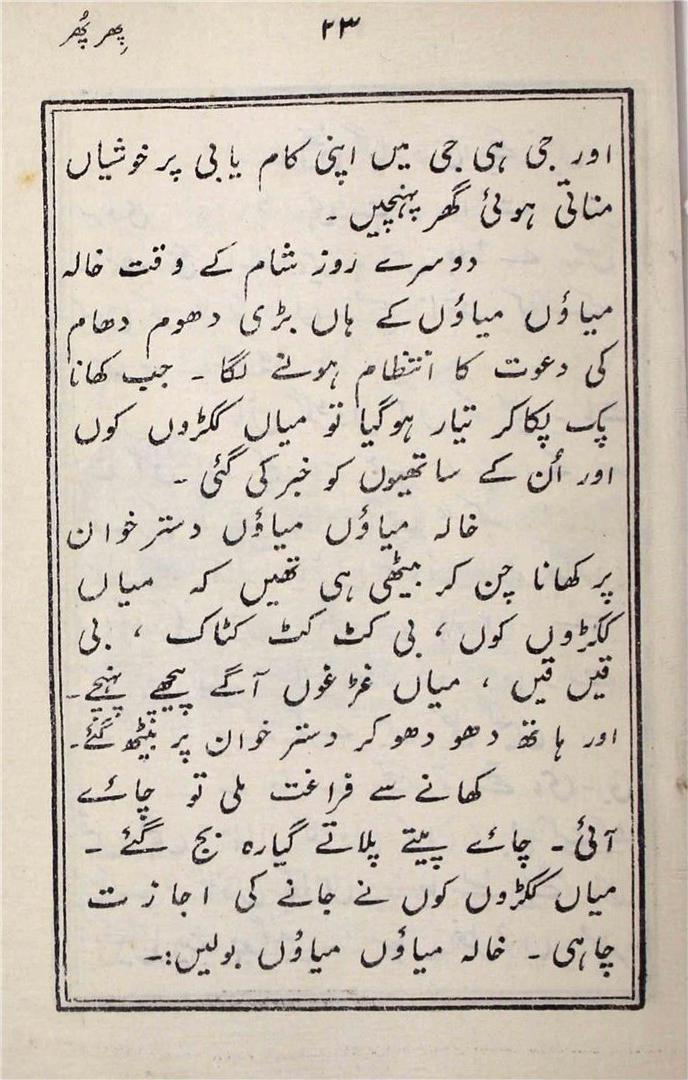 ۲۳ پھر پھُر
اور جی ہی جی میں اپنی کام یابی پر خوشیاں
مناتی ہوئی گھر پہنچیں ۔
دوسرے روز شام کے وقت خالہ
میاؤں میاؤں کے ہاں بڑی دھوم دھام
کی دعوت کا انتظام ہونے لگا ۔ جب کھانا
پک پکا کر تیار ہوگیا تو میاں ککڑوں کوں
اور اُن کے ساتھیوں کو خبر کی گئی ۔
خالہ میاؤں میاؤں دستر خوان
پر کھانا چن کر بیٹھی ہی تھیں کہ میاں
ککڑوں کوں ، بی کٹ کٹ کٹاک ، بی
قیں قیں ، میاں غڑغوں آگے پیچھے پہنچے ۔
اور ہاتھ دھو دھو کر دستر خوان پر بیٹھ گئے ۔
کھانے سے فراغت ملی تو چائے
آئی ۔ چائے پیتے پلاتے گیارہ بج گئے ۔
میاں ککڑوں کوں نے جانے کی اجازت
چاہی ۔ خالہ میاؤں میاؤں بولیں :۔